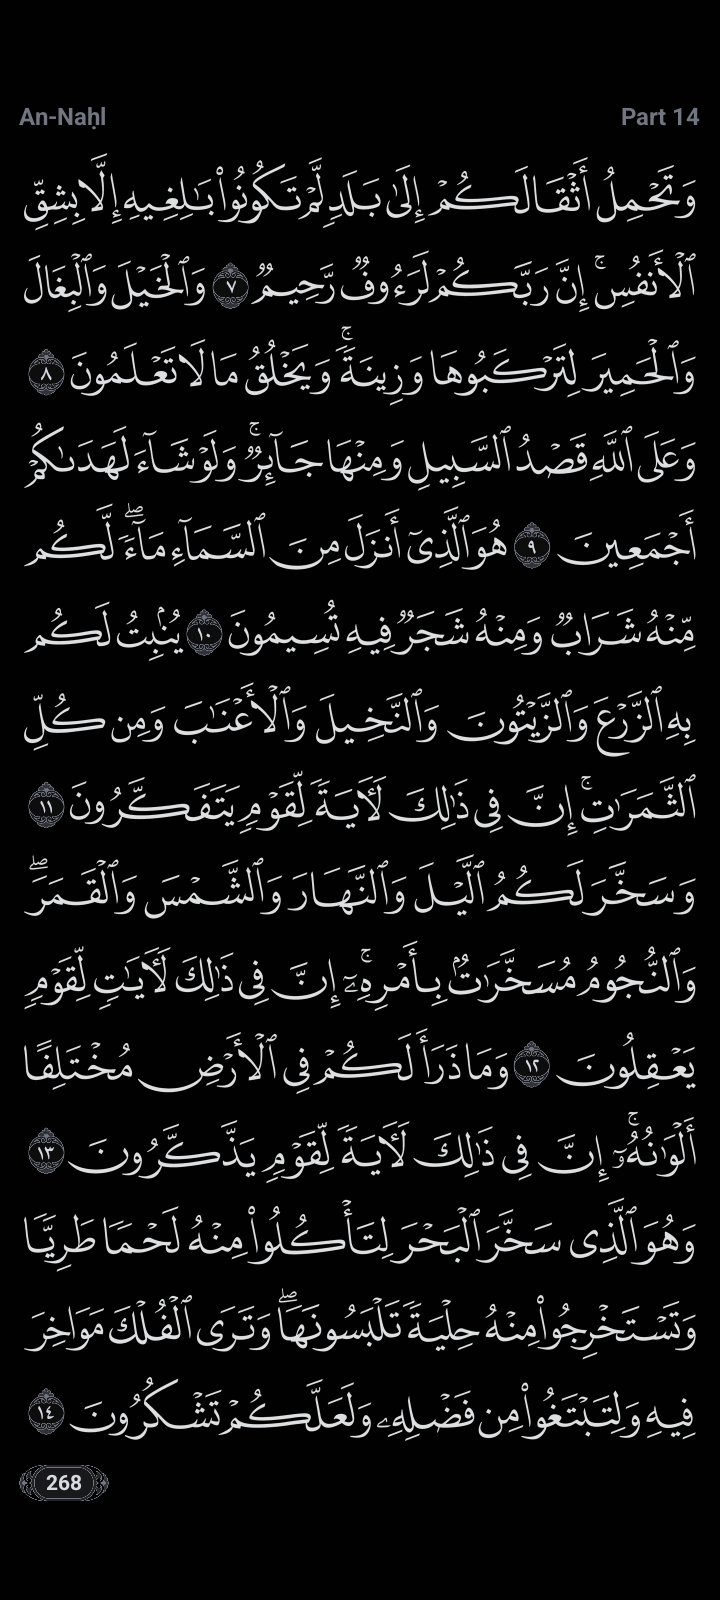 An-Naḥl Part 14
وَتَحْمِلُ أَثْقَالَكُمْ إِلَىٰ بَلَدٍ لَّمْ تَكُونُوا۟ بَـٰلِغِيهِ إِلَّا بِشِقِّ
ٱلْأَنفُسِ ۚ إِنَّ رَبَّكُمْ لَرَءُوفٌ رَّحِيمٌ ٧ وَٱلْخَيْلَ وَٱلْبِغَالَ
وَٱلْحَمِيرَ لِتَرْكَبُوهَا وَزِينَةً ۚ وَيَخْلُقُ مَا لَا تَعْلَمُونَ ٨
وَعَلَى ٱللَّهِ قَصْدُ ٱلسَّبِيلِ وَمِنْهَا جَآئِرٌ ۚ وَلَوْ شَآءَ لَهَدَىٰكُمْ
أَجْمَعِينَ ٩ هُوَ ٱلَّذِىٓ أَنزَلَ مِنَ ٱلسَّمَآءِ مَآءً ۖ لَّكُم
مِّنْهُ شَرَابٌ وَمِنْهُ شَجَرٌ فِيهِ تُسِيمُونَ ١٠ يُنۢبِتُ لَكُم
بِهِ ٱلزَّرْعَ وَٱلزَّيْتُونَ وَٱلنَّخِيلَ وَٱلْأَعْنَـٰبَ وَمِن كُلِّ
ٱلثَّمَرَٰتِ ۗ إِنَّ فِى ذَٰلِكَ لَـَٔايَةً لِّقَوْمٍ يَتَفَكَّرُونَ ١١
وَسَخَّرَ لَكُمُ ٱلَّيْلَ وَٱلنَّهَارَ وَٱلشَّمْسَ وَٱلْقَمَرَ ۖ
وَٱلنُّجُومُ مُسَخَّرَٰتٌۢ بِأَمْرِهِۦٓ ۗ إِنَّ فِى ذَٰلِكَ لَـَٔايَـٰتٍ لِّقَوْمٍ
يَعْقِلُونَ ١٢ وَمَا ذَرَأَ لَكُمْ فِى ٱلْأَرْضِ مُخْتَلِفًا
أَلْوَٰنُهُۥٓ ۗ إِنَّ فِى ذَٰلِكَ لَـَٔايَةً لِّقَوْمٍ يَذَّكَّرُونَ ١٣
وَهُوَ ٱلَّذِى سَخَّرَ ٱلْبَحْرَ لِتَأْكُلُوا۟ مِنْهُ لَحْمًا طَرِيًّا
وَتَسْتَخْرِجُوا۟ مِنْهُ حِلْيَةً تَلْبَسُونَهَا ۖ وَتَرَى ٱلْفُلْكَ مَوَاخِرَ
فِيهِ وَلِتَبْتَغُوا۟ مِن فَضْلِهِۦ وَلَعَلَّكُمْ تَشْكُرُونَ ١٤
268